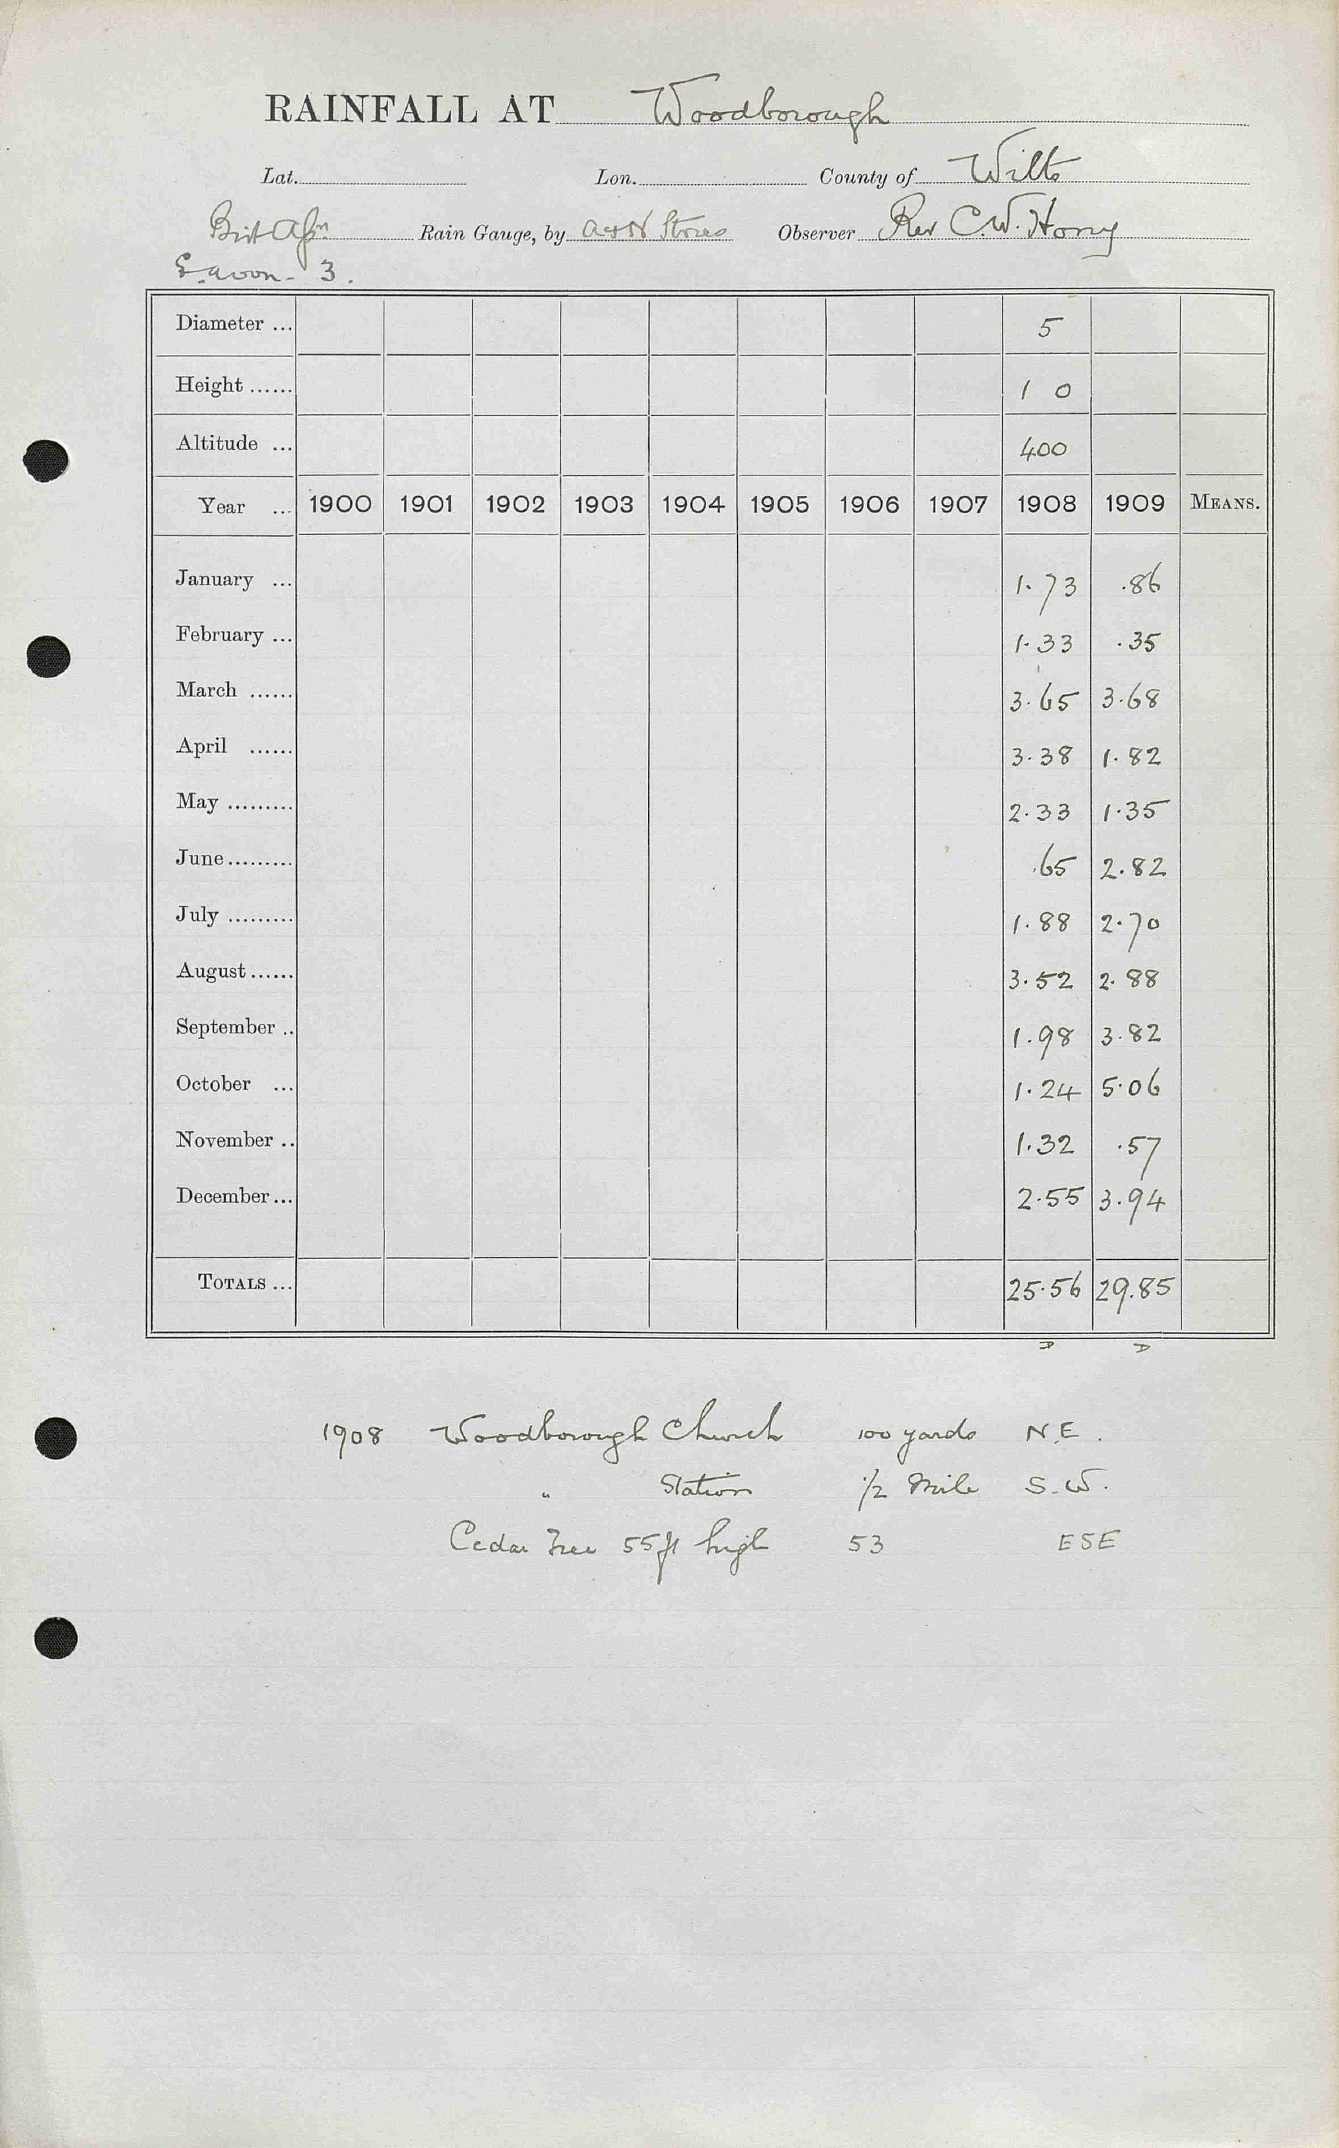 RAINFALL AT Woodborough
Lat. Lon. County of Wilts
Brit Assn Rain Gauge, by A & N Stores Observer Rev C.W. Hony
E. Avon - 3.
Diameter ... 5
Height ...... 1 0
Altitude ... 400
Year ... 1900 1901 1902 1903 1904 1905 1906 1907 1908 1909 MEANS.
January ... 1.73 .86
February ... 1.33 .35
March ...... 3.65 3.68
April ...... 3.38 1.82
May ......... 2.33 1.35
June ......... .65 2.82
July ......... 1.88 2.70
August ...... 3.52 2.88
September .. 1.98 3.82
October ... 1.24 5.06
November .. 1.32 .57
December ... 2.55 3.94
TOTALS ... 25.56 29.85
D D
1908 Woodborough Church 100 yards N.E.
" Station 1/2 Mile S.W.
Cedar Tree 55ft high 53 ESE